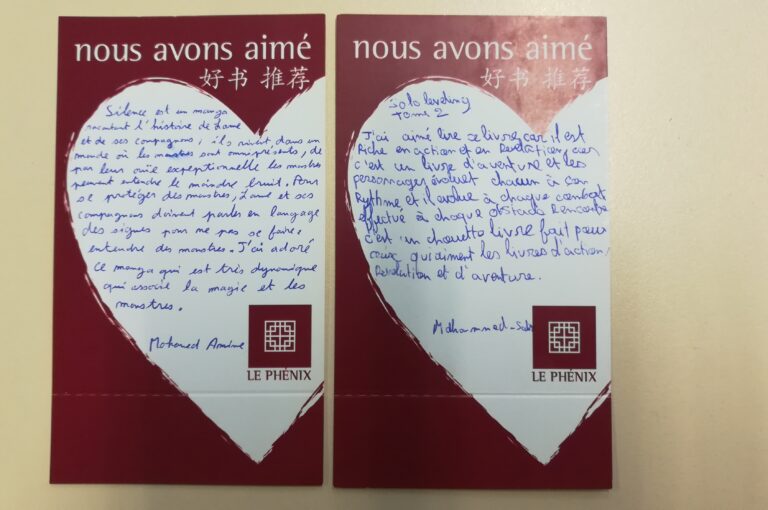 nous avons aimé
好书 推荐
Silence est un manga
racontant l'histoire de Lame
et de ses compagnons ; ils vivent dans un
monde où les monstres sont omniprésents, de
par leur ouïe exeptionnelle les monstres
peuvent entendre le moindre bruit. Pour
se protéger des monstres, Lame et ses
compagnons doivent parler en langage
des signes pour ne pas se faire
entendre des monstres. J'ai adoré
ce manga qui est très dynamique
qui associ la magie et les
monstres.
Mohamed Amine
LE PHÉNIX
nous avons aimé
好书 推荐
Solo leveling
Tome 2
J'ai aimé lire ce livre car il est
Riche en action et en car
c'est un livre d'aventure et les
personnages évoluet chacun à son
Rythme et il evolue à chaque combat
effectué à chaque obstacle
c'est un chouette livre fait pour
ceux qui aiment les livres d'action,
Revelation et d'aventure.
Mohammed-
LE PHÉNIX